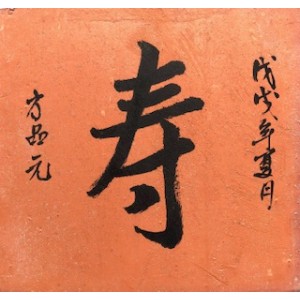 戊戌年夏月
寿
方品元